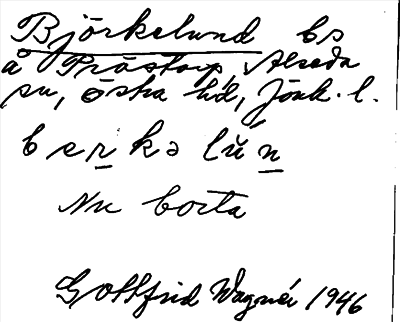 Björkelund bs
å Prästorp Alseda
sn, östra hd, Jönk. l.
bęrkə lŭn
Nu borta
Gottfrid Wagnér 1946